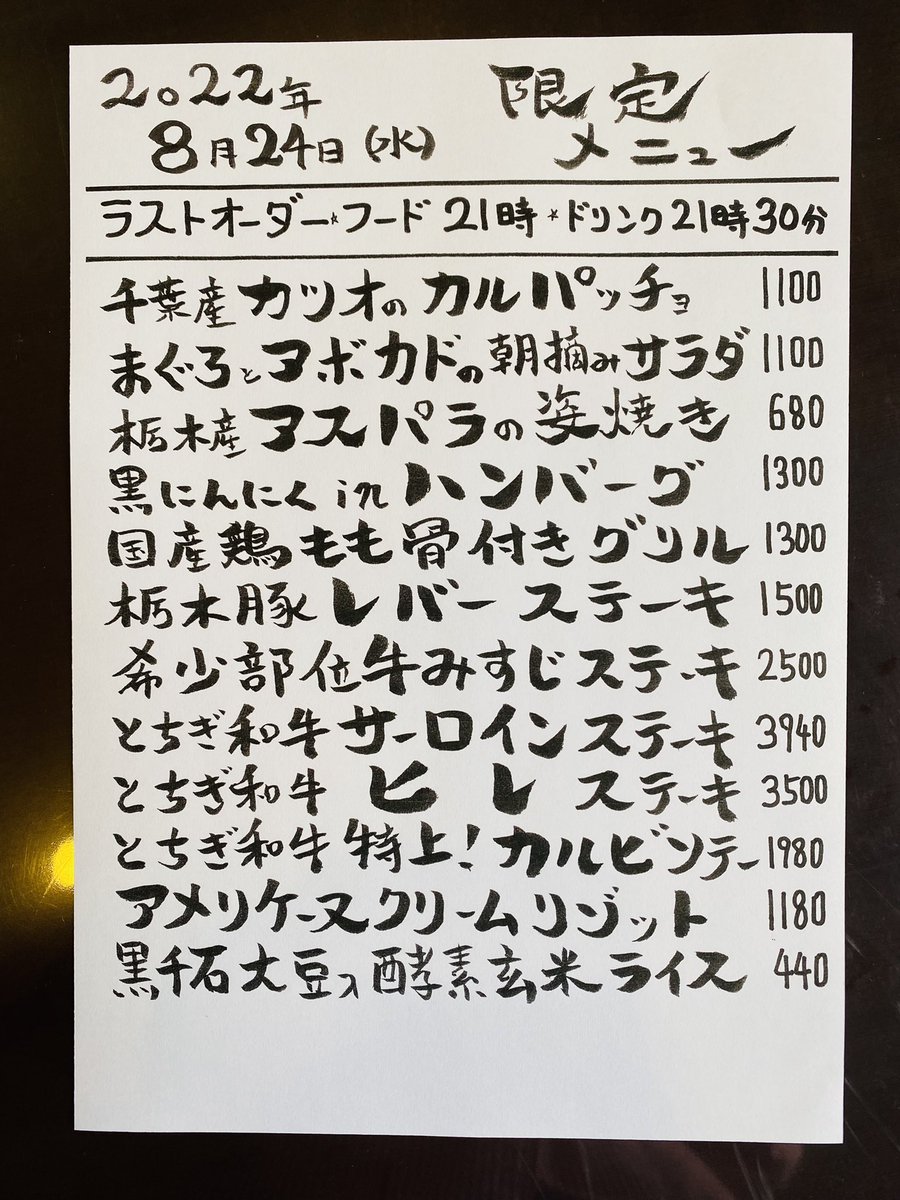 2022年
8月24日(水)
限定
メニュー
ラストオーダー☆フード 21時☆ドリンク21時30分
千葉産カツオのカルパッチョ 1100
まぐろとアボカドの朝摘みサラダ 1100
栃木産アスパラの姿焼き 680
黒にんにくinハンバーグ 1300
国産鶏もも骨付きグリル 1300
栃木豚レバーステーキ 1500
希少部位牛みすじステーキ 2500
とちぎ和牛サーロインステーキ 3940
とちぎ和牛ヒレステーキ 3500
とちぎ和牛特上!カルビソテー 1980
アメリケーヌクリームリゾット 1180
黒千石大豆入酵素玄米ライス 440